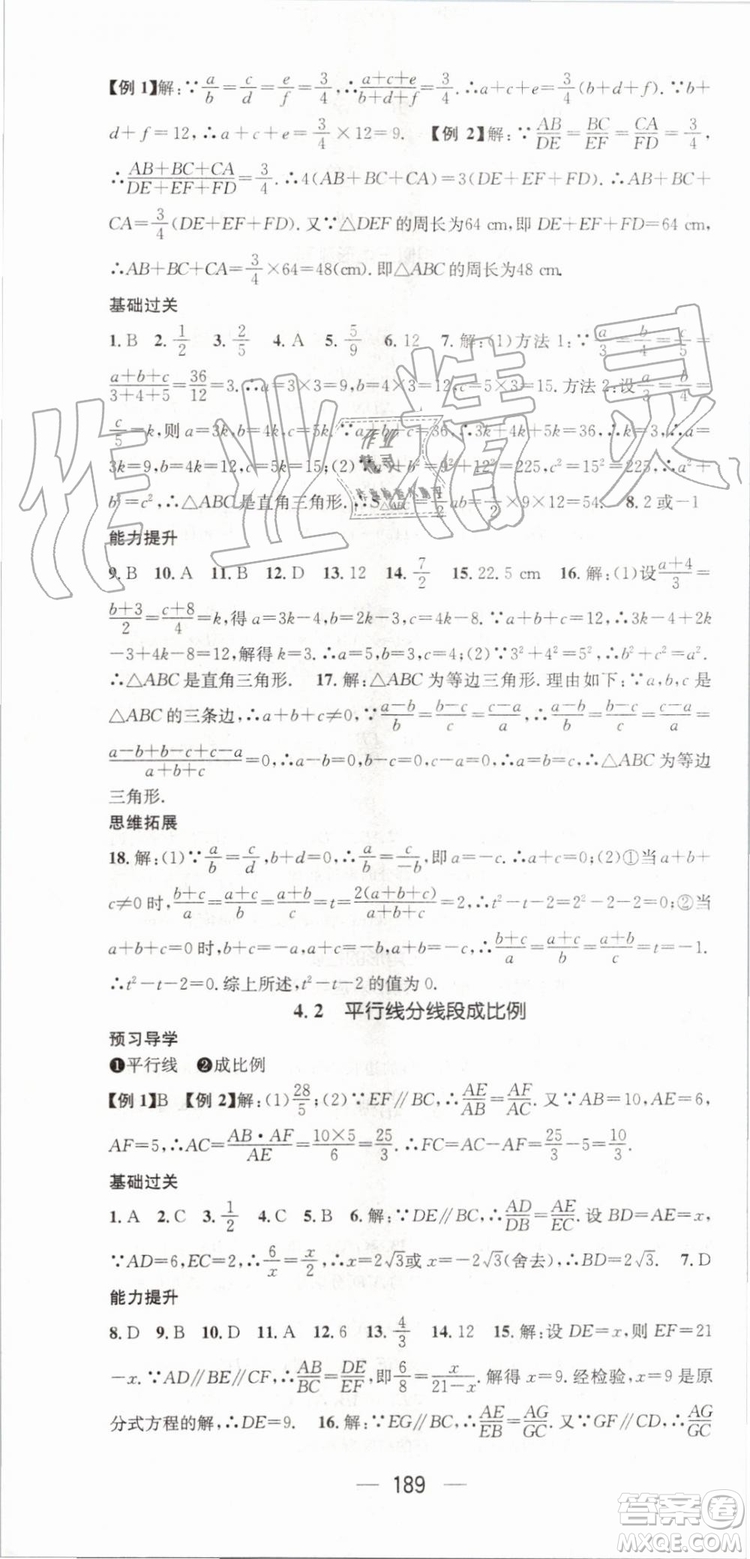 【例 1】解:∵a/b=c/d=e/f=3/4,∴(a+c+e)/(b+d+f)=3/4.∴a+c+e=3/4(b+d+f).∵b+
d+f=12,∴a+c+e=3/4×12=9. 【例 2】解:∵AB/DE=BC/EF=CA/FD=3/4,
∴(AB+BC+CA)/(DE+EF+FD)=3/4.∴4(AB+BC+CA)=3(DE+EF+FD),即 AB+BC+
CA=3/4(DE+EF+FD).又∵△DEF的周长为64 cm,即 DE+EF+FD=64 cm,
∴AB+BC+CA=3/4×64=48(cm).即△ABC的周长为48 cm.
基础过关
1.B 2.1/2 3.2/5 4.A 5.5/9 6.12 7.解:(1)方法 1:∵a/3=b/4=c/5=
(a+b+c)/(3+4+5)=36/12=3.∴a=3×3=9,b=4×3=12,c=5×3=15.方法 2:设a/3=b/4=
c/5=k,则 a=3k,b=4k,c=5k.∵a+b+c=36,∴3k+4k+5k=36.∴k=3.∴a=
3k=9,b=4k=12,c=5k=15.(2)∵a²+b²=9²+12²=225,c²=15²=225,∴a²+
b²=c²,∴△ABC是直角三角形.∴S△ABC=1/2ab=1/2×9×12=54. 8.2 或-1
能力提升
9.B 10.A 11.B 12.D 13.12 14.7/2 15.22.5 cm 16.解:(1)设(a+4)/3=
(b+3)/2=(c+8)/4=k,得 a=3k-4,b=2k-3,c=4k-8,∵a+b+c=12,∴3k-4+2k
-3+4k-8=12,解得 k=3.∴a=5,b=3,c=4.(2)∵3²+4²=25,5²=25,∴3²+4²=5².
∴△ABC是直角三角形. 17.解:△ABC为等边三角形.理由如下:∵a,b,c是
△ABC的三条边,∴a+b+c≠0.∵(a-b)/b=(b-c)/c=(c-a)/a,∴(a-b)/b=(b-c)/c=(c-a)/a=
(a-b+b-c+c-a)/(a+b+c)=0,∴a-b=0,b-c=0,c-a=0,∴a=b=c.∴△ABC为等边
三角形.
思维拓展
18.解:(1)∵a/b=c/d,b+d=0,∴a/b=c/d=(a+c)/(b+d),∴a+c=0,即 a=-c.(2)①当 a+b+
c≠0 时,(b+c)/a=(a+c)/b=(a+b)/c=t=2(a+b+c)/(a+b+c)=2,∴t²-t-2=2²-2-2=0;②当
a+b+c=0时,b+c=-a,a+c=-b,a+b=-c,∴(b+c)/a=(a+c)/b=(a+b)/c=t=-1.
∴t²-t-2=0.综上所述,t²-t-2 的值为 0.
4.2 平行线分线段成比例
预习导学
❶平行线 ❷成比例
【例 1】B 【例 2】解:(1)28/5;(2)∵EF∥BC,∴AE/AB=AF/AC.又∵AB=10,AE=6,
AF=5,∴AC=(AB·AF)/AE=(10×5)/6=25/3.∴FC=AC-AF=25/3-5=10/3.
基础过关
1.A 2.C 3.1/2 4.C 5.B 6.解:∵DE∥BC,∴AD/DB=AE/EC.设 BD=AE=x,
∵AD=6,EC=2,∴6/x=x/2,∴x=2√3或 x=-2√3(舍去),∴BD=2√3. 7.D
能力提升
8.D 9.B 10.D 11.A 12.6 13.4/3 14.12 15.解:设 DE=x,则 EF=21
-x.∵AD∥BE∥CF,∴AB/BC=DE/EF,即6/8=x/(21-x).解得 x=9.经检验,x=9是原
分式方程的解,∴DE=9. 16.解:∵EG∥BC,∴AE/EB=AG/GC.又∵GF∥CD,∴AG/GC=
— 189 —
作业精灵
作业
精灵
答案圈
MXQE.COM